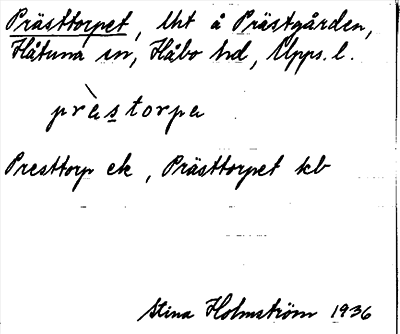 Prästtorpet, lht å Prästgården,
Håtuna sn, Håbo hd, Upps. l.
prὰstorpa
Presttorp ek, Prästtorpet kb
Stina Holmström 1936